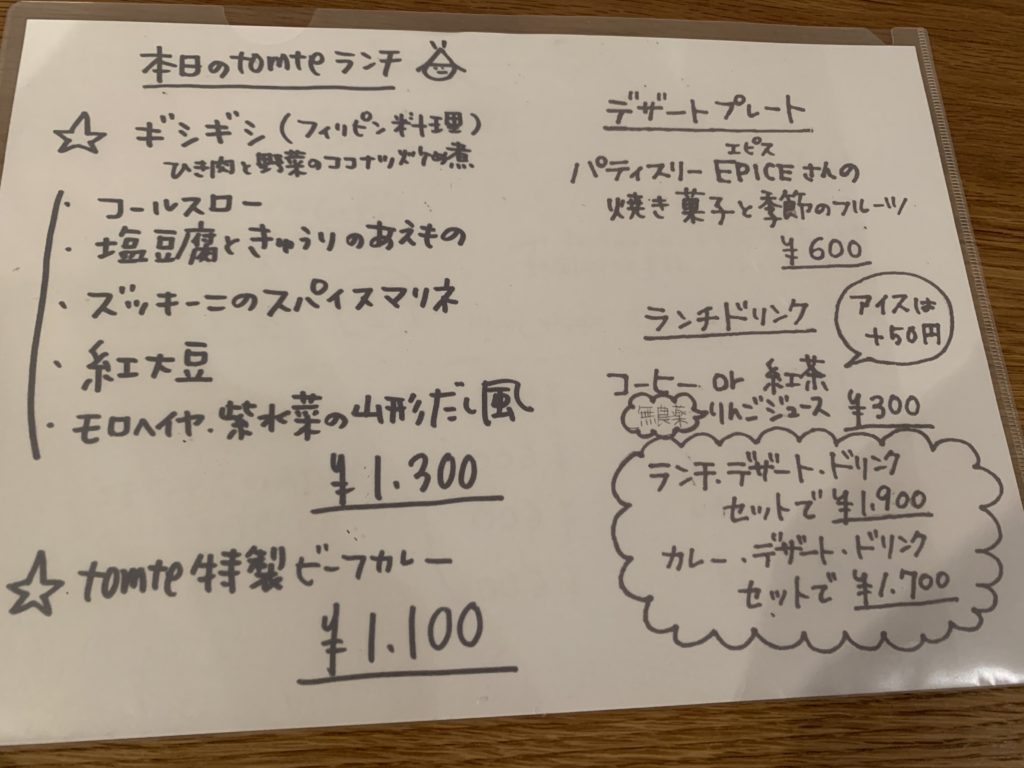 本日のtomteランチ
☆ ギシギシ(フィリピン料理)
ひき肉と野菜のココナツ炒め煮
・コールスロー
・塩豆腐ときゅうりのあえもの
・ズッキーニのスパイスマリネ
・紅大豆
・モロヘイヤ.紫水菜の山形だし風
¥1.300
☆ tomte特製ビーフカレー
¥1.100
デザートプレート
エピス
パティスリー EPICEさんの
焼き菓子と季節のフルーツ
¥600
ランチドリンク
アイスは
+50円
コーヒー or 紅茶
無農薬 りんごジュース ¥300
ランチ.デザート.ドリンク
セットで ¥1.900
カレー.デザート.ドリンク
セットで ¥1.700